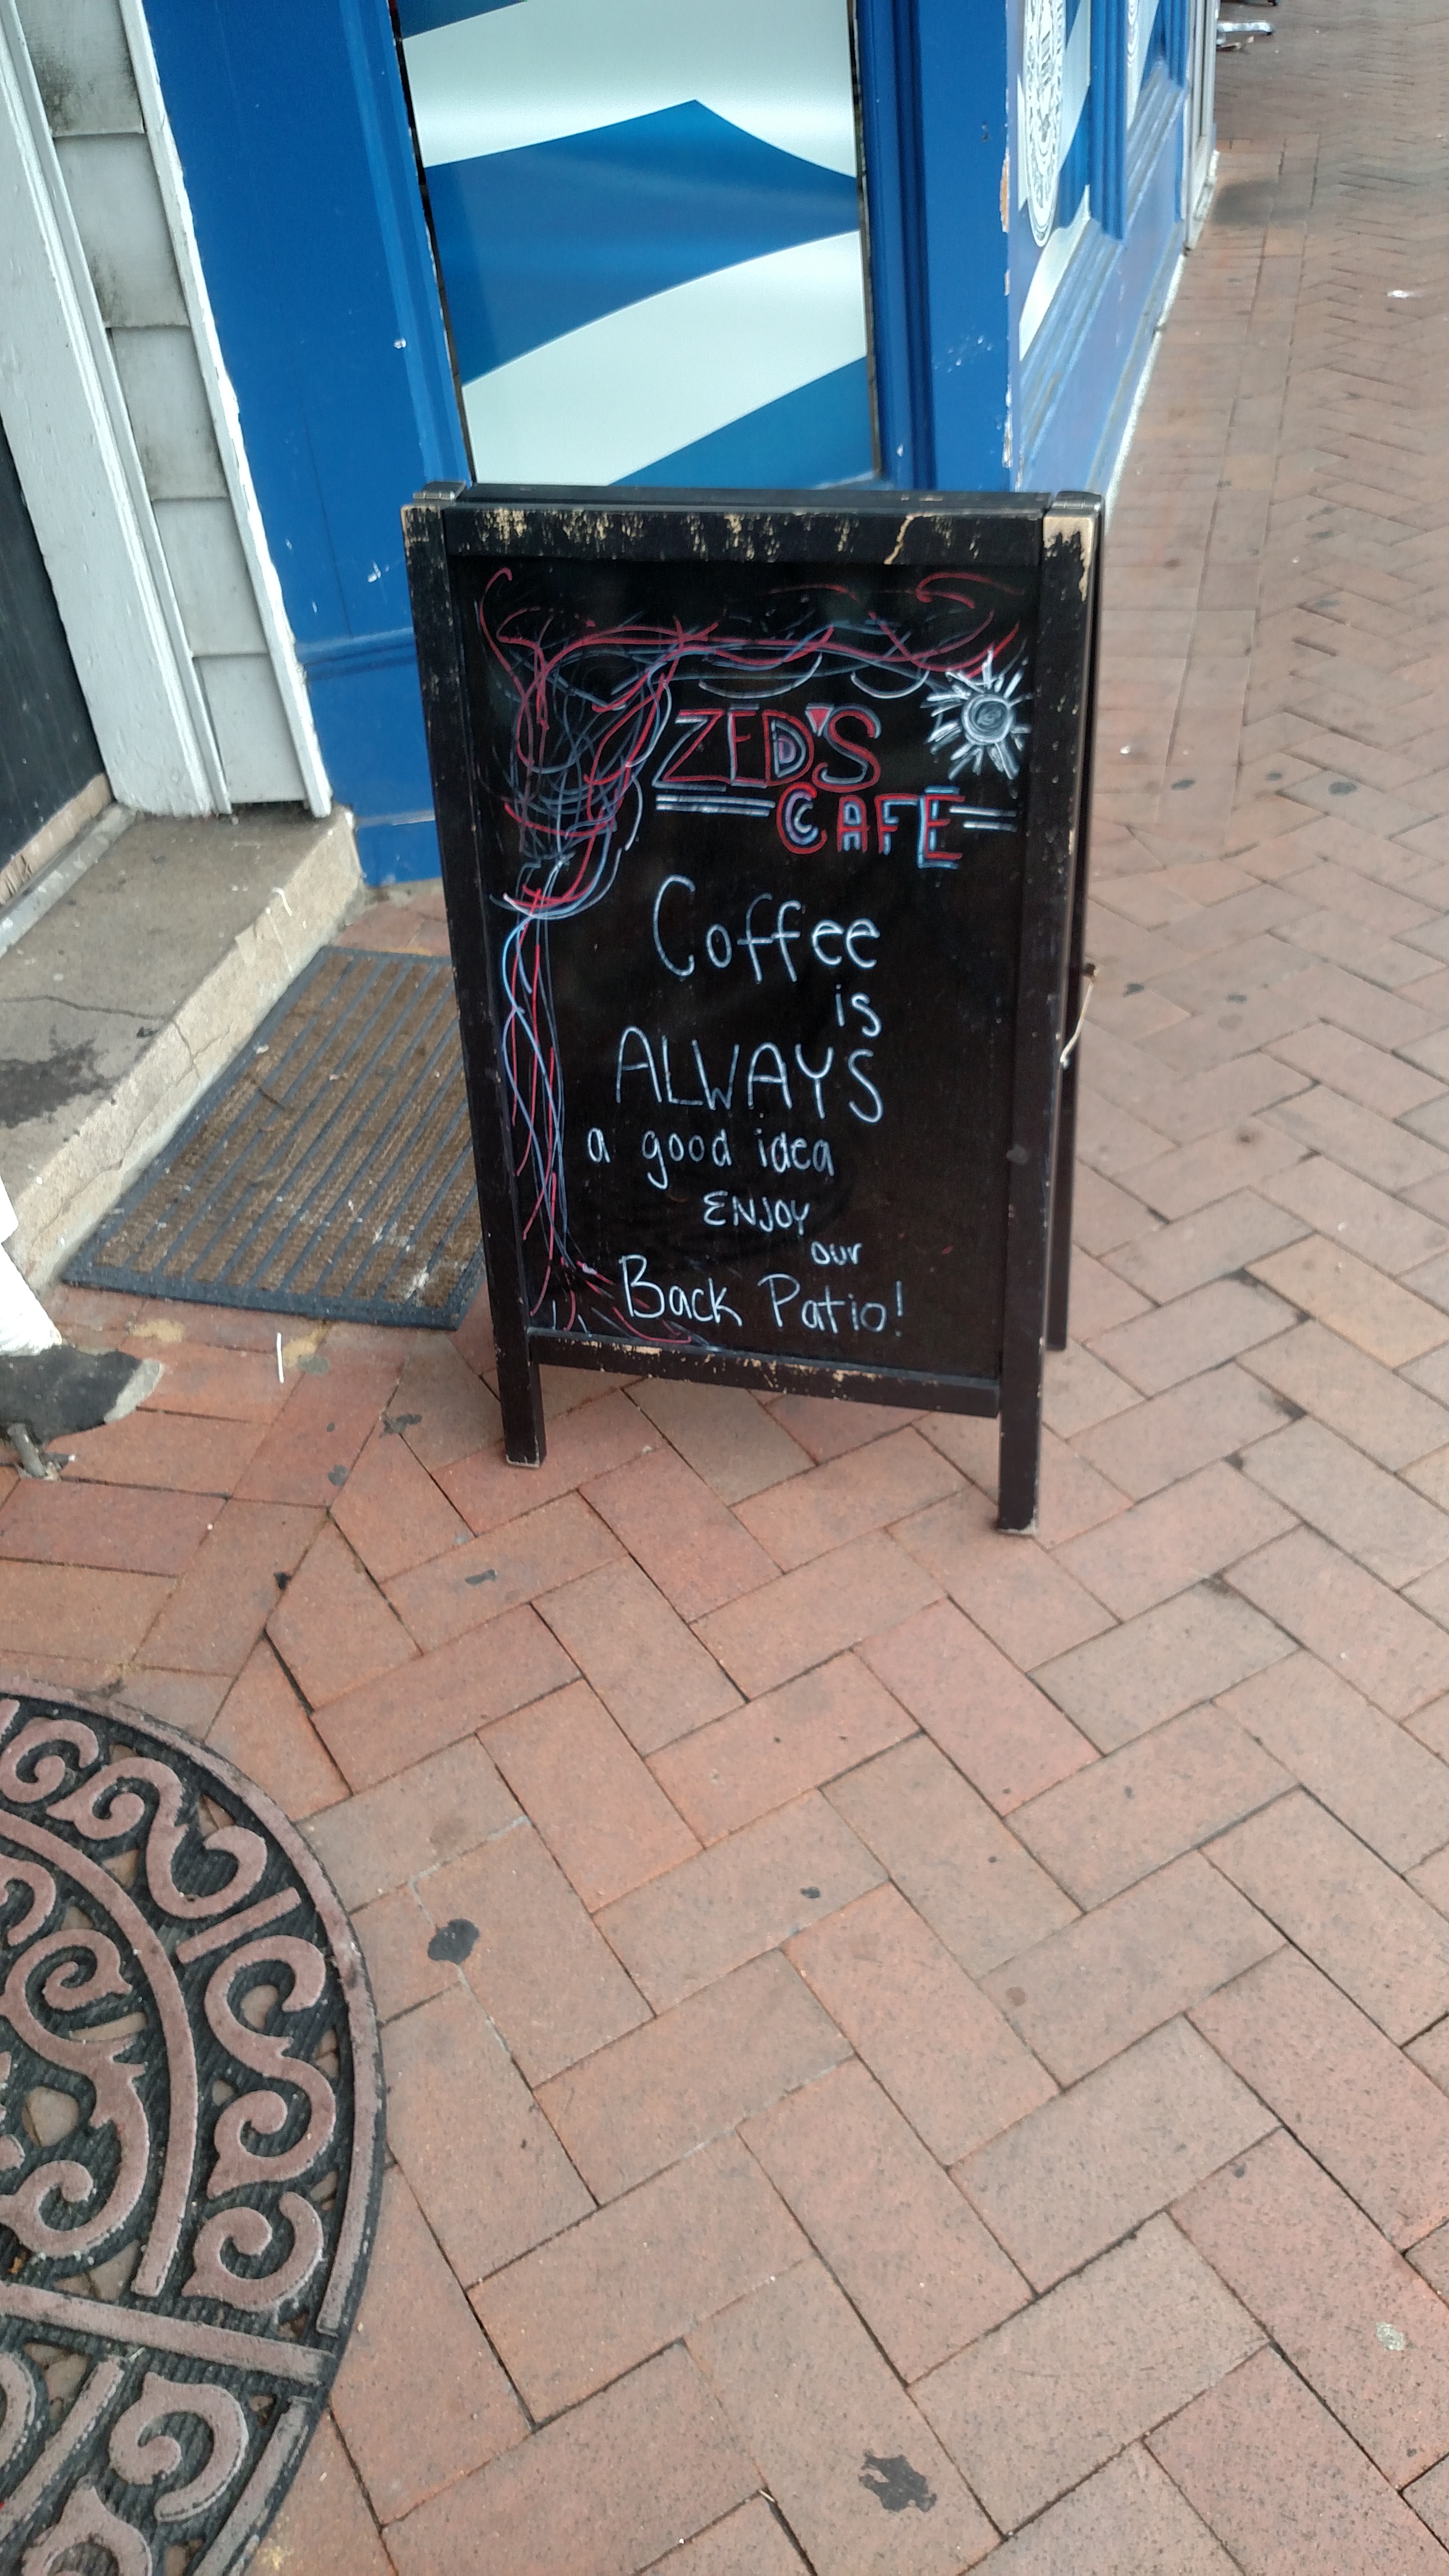 ZED'S
CAFE
Coffee
is
ALWAYS
a good idea
ENJOY
our
Back Patio!